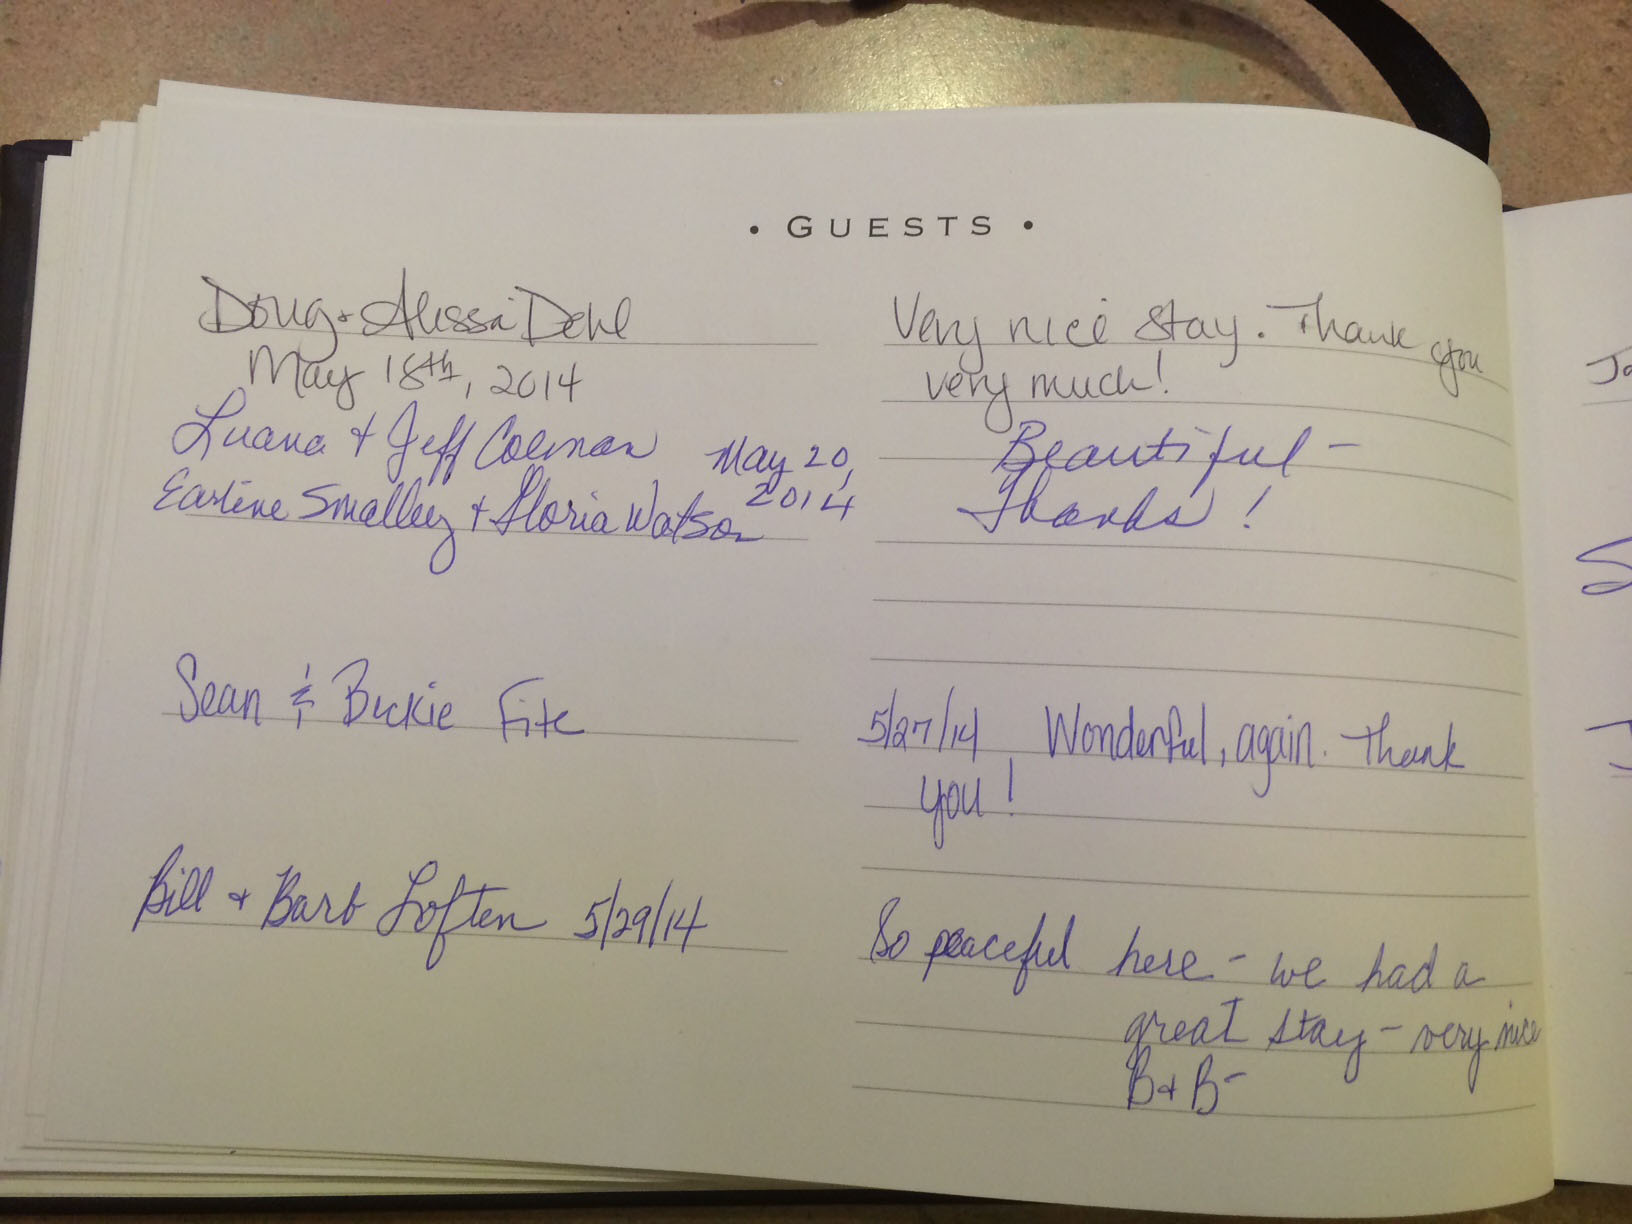 • GUESTS •
Doug & Alissa Dehl
May 18th, 2014
Very nice stay. Thank you
very much!
Luana + Jeff Coleman May 20,
2014
Earlene Smalley + Gloria Watson
Beautiful -
Thanks!
Sean & Beckie Fite
5/27/14 Wonderful, again. Thank
you!
Bill + Barb Loften 5/29/14
So peaceful here - we had a
great stay - very nice
B+B-